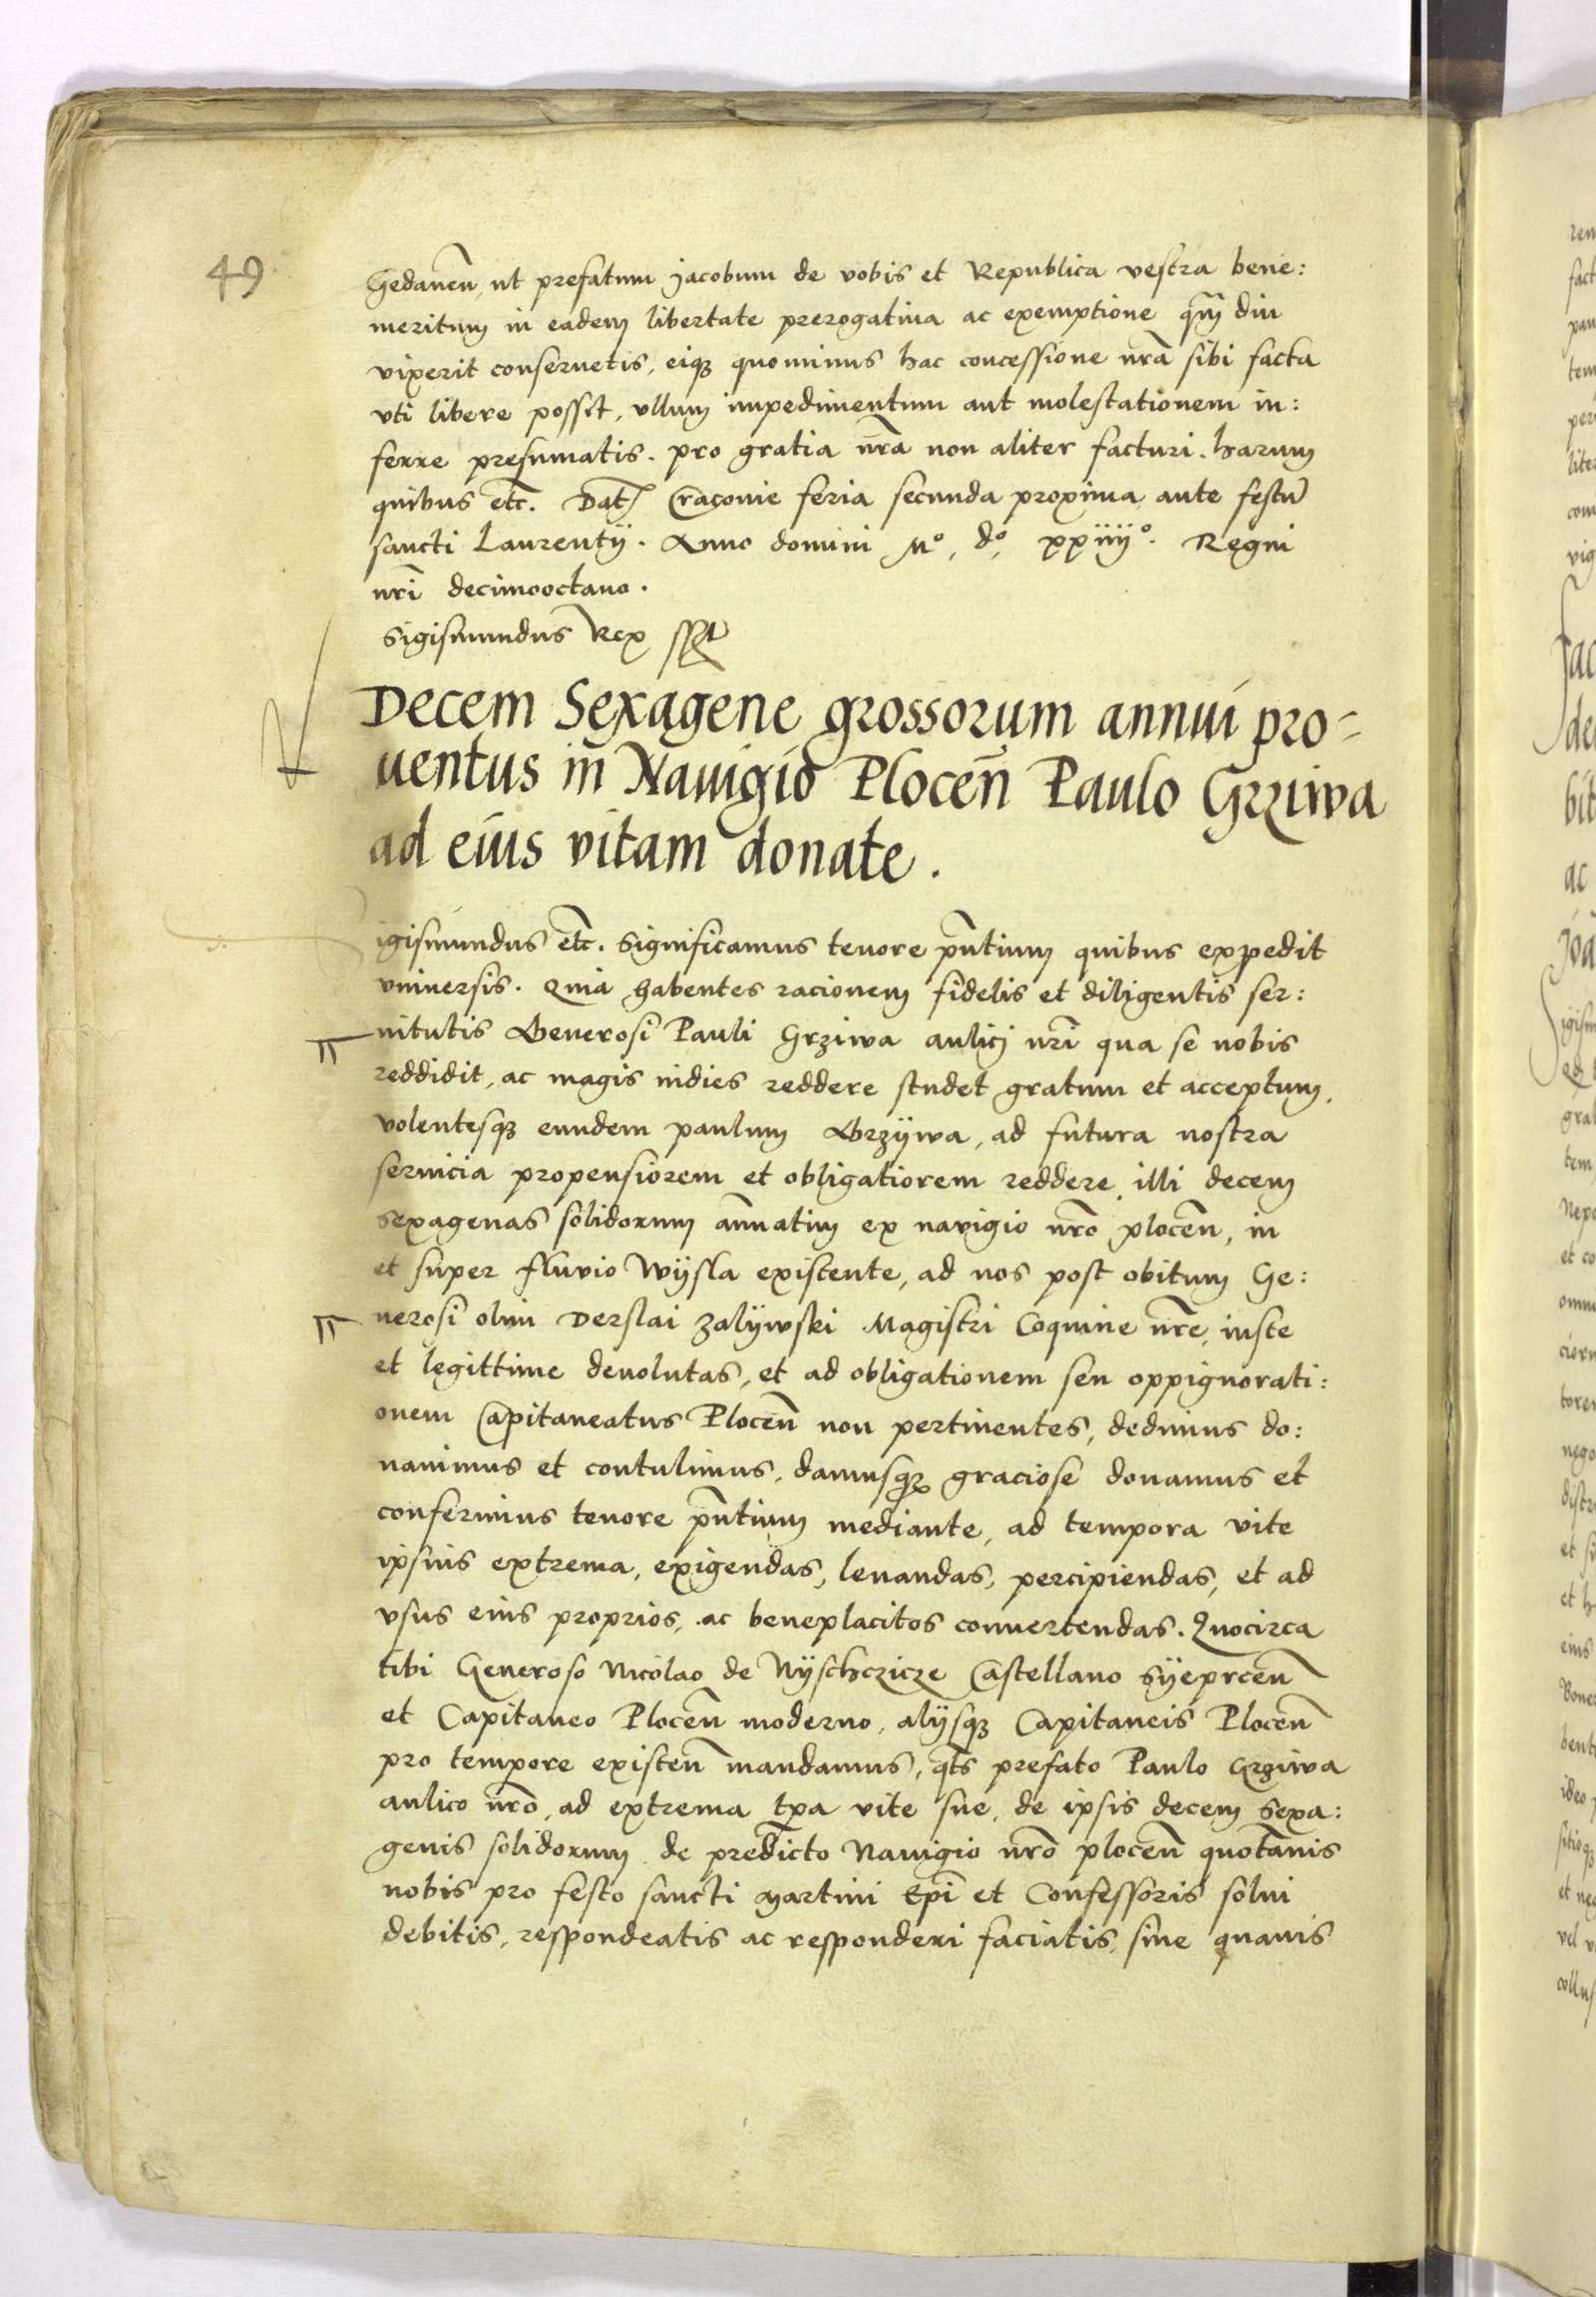 49
Gedanen̄, ut prefatum Jacobum de vobis et Republica vestra bene:
meritum in eadem libertate prerogatiua ac exemptione qm̄ diu
vixerit conseruetis, eiqȝ quominus hac concessione nr̄a sibi facta
vti libere possit, vllum impedimentum aut molestationem in:
ferre presumatis. pro gratia nr̄a non aliter facturi. harum
quibus etc̄. Dat̄ Cracouie feria secunda proxima ante festū
sancti Laurentÿ. Anno domini Mº, dº, xxiiijº. Regni
nr̄i decimooctauo.
Sigismundus Rex sst
Decem Sexagene grossorum annui pro=
uentus in Nauigio Plocen̄ Paulo Grziwa
ad eius vitam donate.
igismundus etc̄. Significamus tenore pn̄tium quibus expedit
vniuersis. Quia habentes racionem fidelis et diligentis ser:
uitutis Generosi Pauli Grziwa aulici nr̄i qua se nobis
reddidit, ac magis indies reddere studet gratum et acceptum,
volentesqȝ eundem paulum Grzÿwa, ad futura nostra
seruicia propensiorem et obligatiorem reddere, illi decem
sexagenas solidorum an̄uatim ex navigio nr̄o plocen̄, in
et super fluvio Wÿsla existente, ad nos post obitum Ge:
nerosi olim Derslai Zalÿwski Magistri Coquine nr̄e, iuste
et legittime deuolutas, et ad obligationem seu oppignorati:
onem Capitaneatus Plocen̄ non pertinentes, dedimus do:
nauimus et contulimus, damusqȝ graciose donamus et
conferimus tenore pn̄tium mediante, ad tempora vite
ipsius extrema, exigendas, leuandas, percipiendas, et ad
vsus eius proprios, ac beneplacitos conuertendas. Quocirca
tibi Generoso Nicolao de Nÿschczicze Castellano Sÿeprcen̄
et Capitaneo Plocen̄ moderno, alÿsqȝ Capitaneis Plocen̄
pro tempore existen̄ mandamus, qt̄s prefato Paulo Grziwa
aulico nr̄o, ad extrema tp̄a vite sue, de ipsis decem sexa:
genis solidorum de predicto Nauigio nr̄o plocen̄ quotān̄is
nobis pro festo sancti Martini Ep̄i et Confessoris solui
debitis, respondeatis ac responderi faciatis, sine quauis